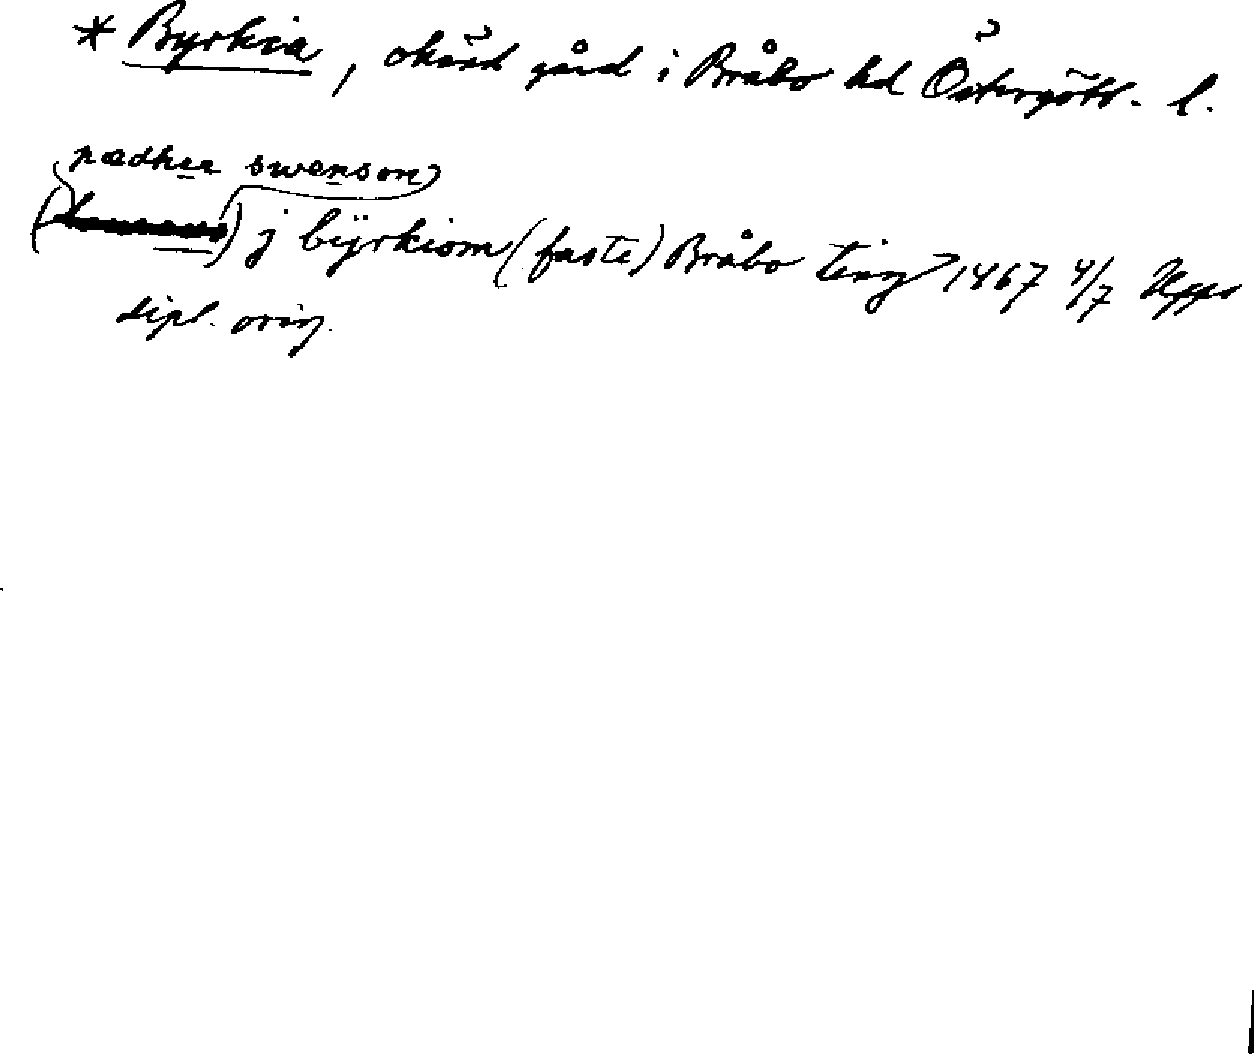 * Byrkia, okänd gård i Bråbo hd Östergötl. l.
pædhar swenson
( ) j bÿrkiom (faste) Bråbo ting 1467 4/7 Upps
dipl. orig.